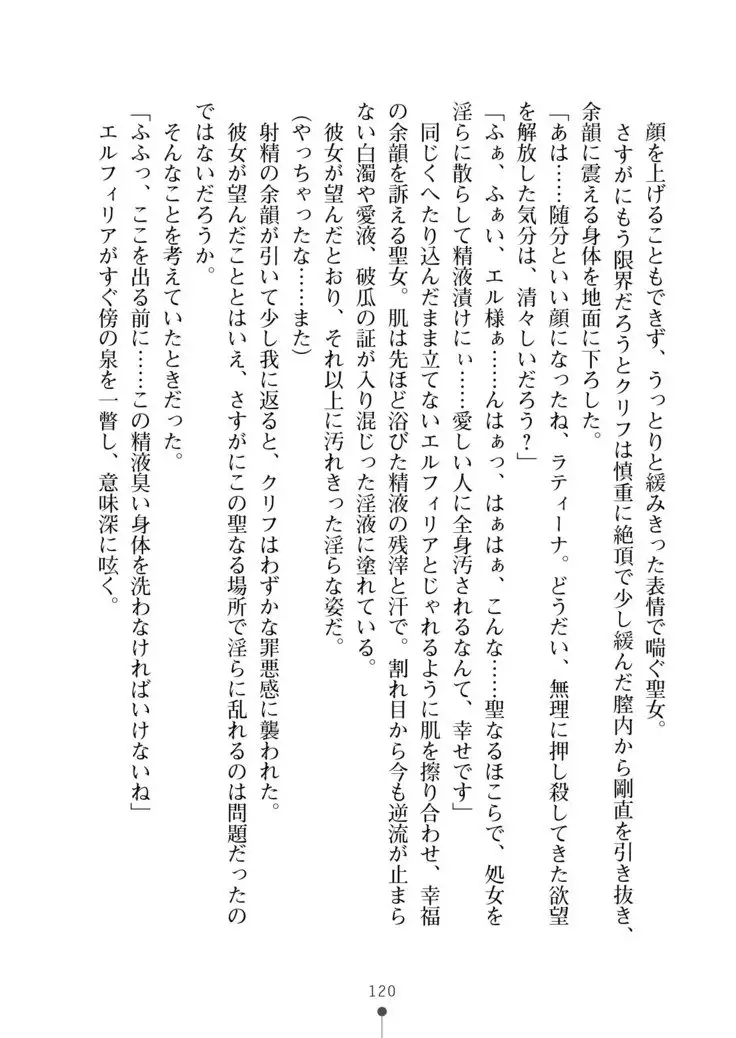 顔を上げることもできず、うっとりと緩みきった表情で喘ぐ聖女。
さすがにもう限界だろうとクリフは慎重に絶頂で少し緩んだ膣内から剛直を引き抜き、
余韻に震える身体を地面に下ろした。
「あは……随分といい顔になったね、ラティーナ。どうだい、無理に押し殺してきた欲望
を解放した気分は、清々しいだろう?」
「ふぁ、ふぁい、エル様ぁ……んはぁっ、はぁはぁ、こんな……聖なるほこらで、処女を
淫らに散らして精液漬けにぃ……愛しい人に全身汚されるなんて、幸せです」
同じくへたり込んだまま立てないエルフィリアとじゃれるように肌を擦り合わせ、幸福
の余韻を訴える聖女。肌は先ほど浴びた精液の残滓と汗で。割れ目から今も逆流が止まら
ない白濁や愛液、破瓜の証が入り混じった淫液に塗れている。
彼女が望んだとおり、それ以上に汚れきった淫らな姿だ。
(やっちゃったな……また)
射精の余韻が引いて少し我に返ると、クリフはわずかな罪悪感に襲われた。
彼女が望んだこととはいえ、さすがにこの聖なる場所で淫らに乱れるのは問題だったの
ではないだろうか。
そんなことを考えていたときだった。
「ふふっ、ここを出る前に……この精液臭い身体を洗わなければいけないね」
エルフィリアがすぐ傍の泉を一瞥し、意味深に呟く。
120